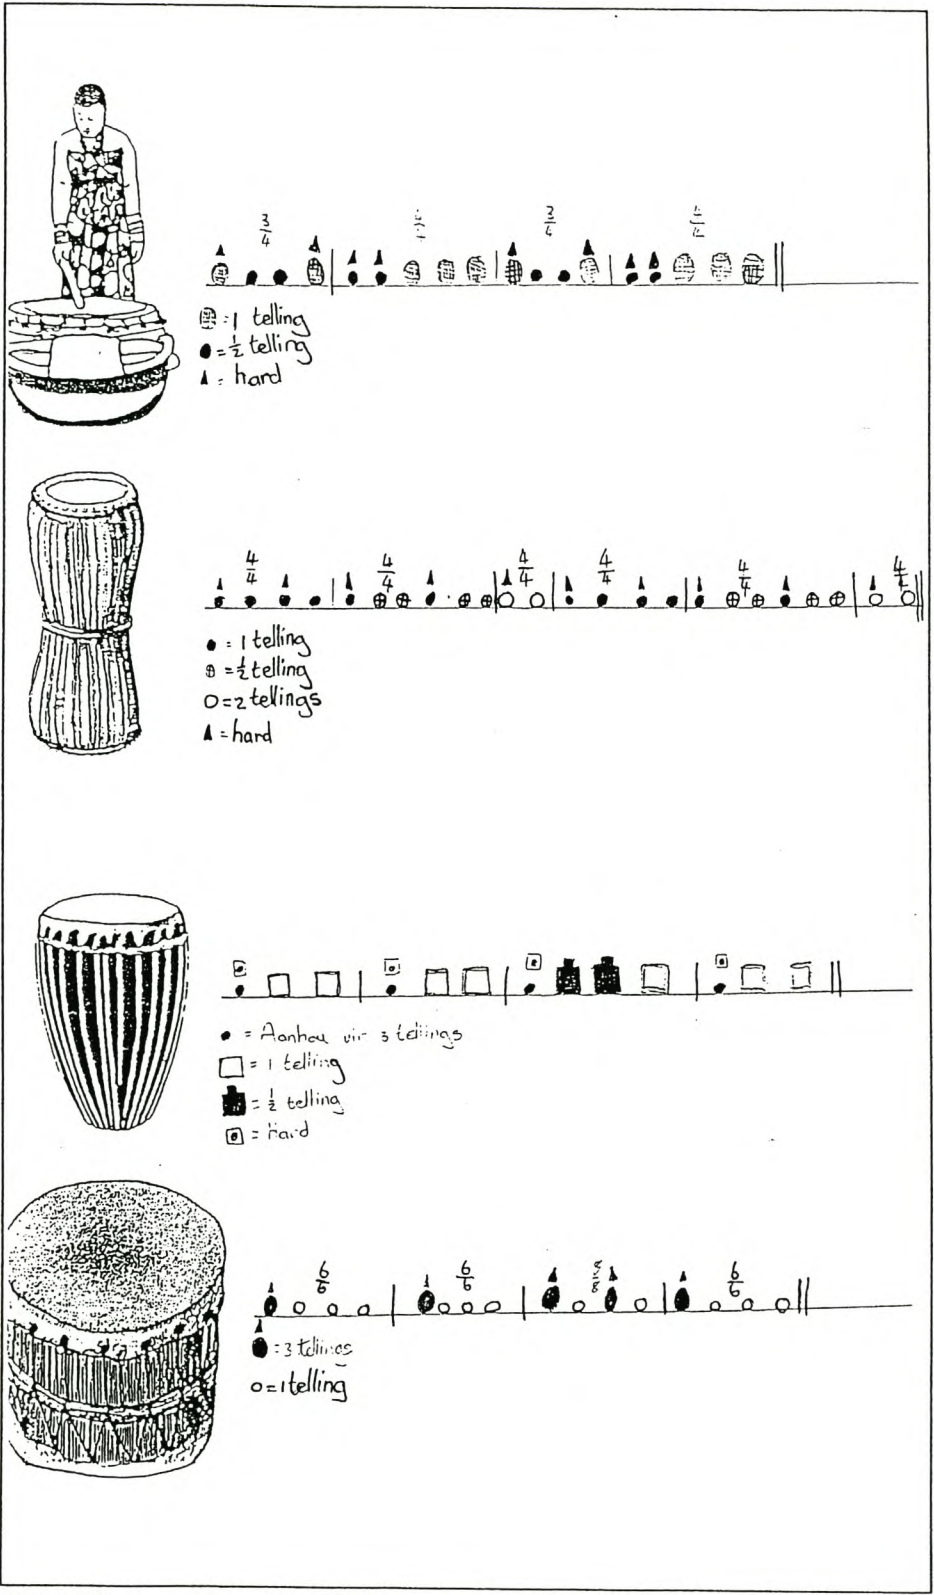 3/4 3/4
= 1 telling
= 1/2 telling
= hard
4/4 4/4 4/4 4/4 4/4 4/4
= 1 telling
= 1/2 telling
= 2 tellings
= hard
= Aanhou vir 3 tellings
= 1 telling
= 1/2 telling
= Hard
6/6 6/6 6/6
= 3 tellings
= 1 telling